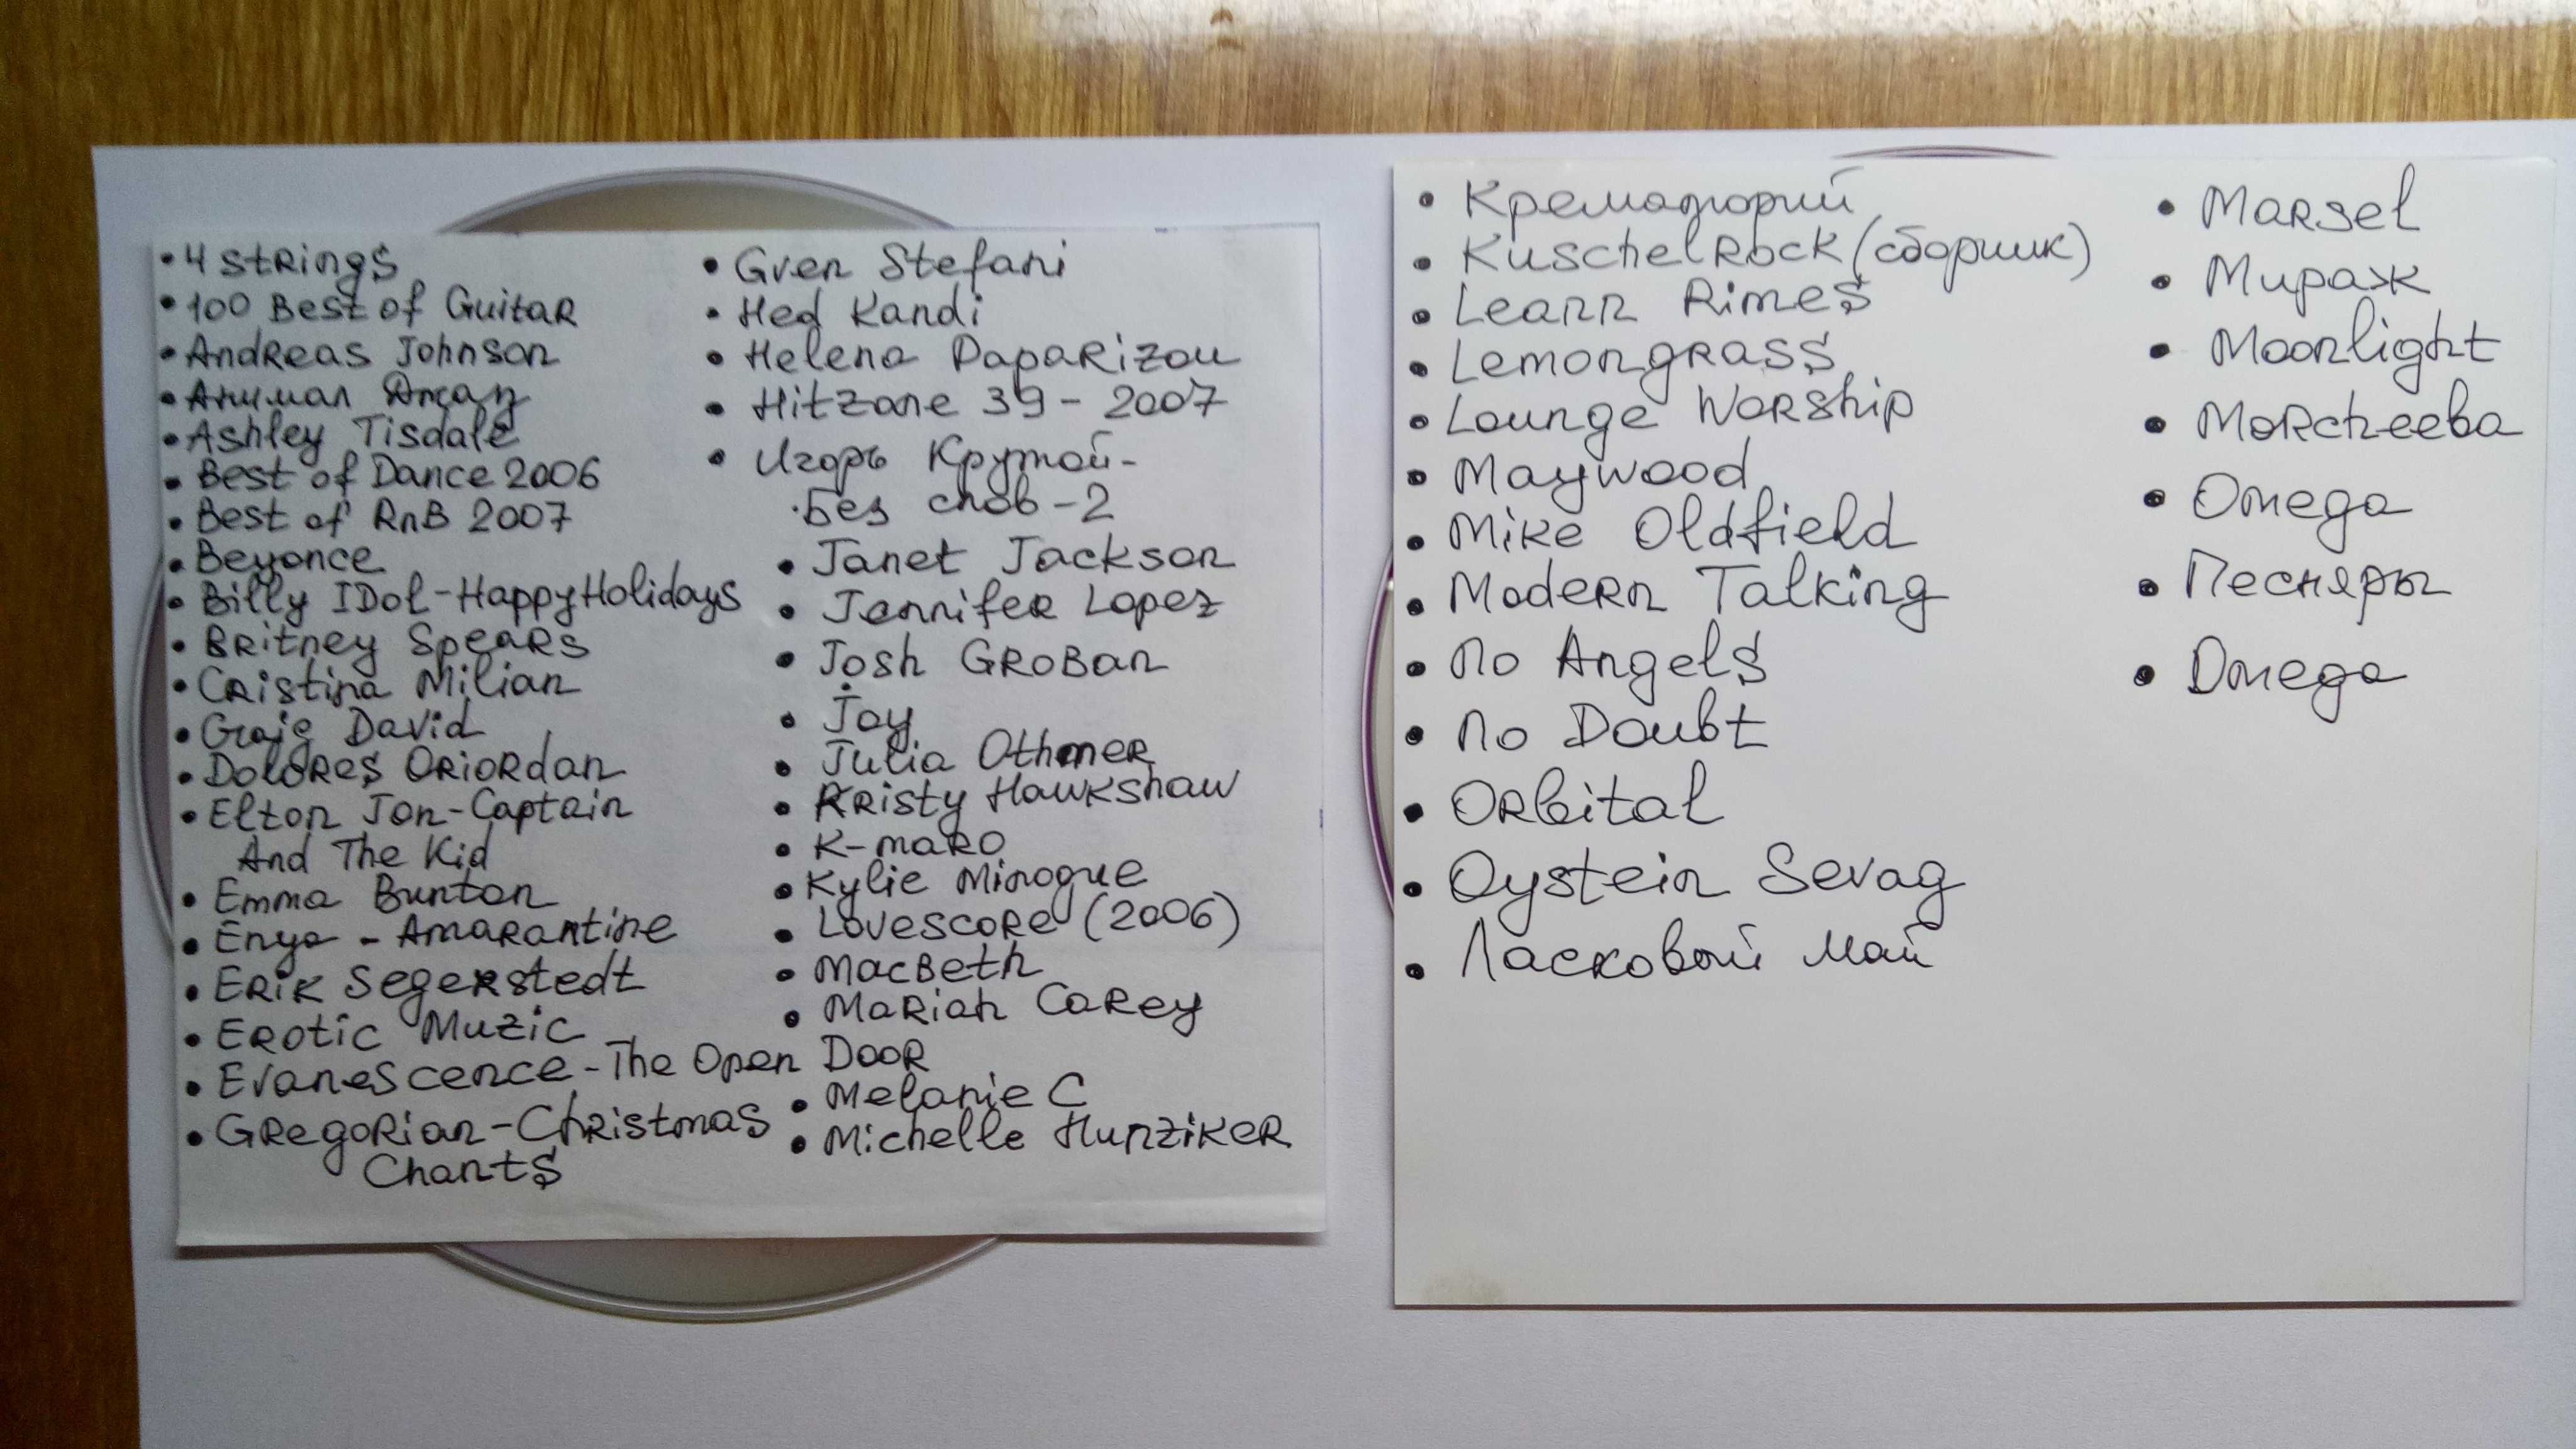 4 Strings
100 Best of Guitar
Andreas Johnson
Анимал Джаз
Ashley Tisdale
Best of Dance 2006
Best of RnB 2007
Beyonce
Billy IDol-Happy Holidays
Britney Spears
Cristina Milian
Graig David
Dolores Oriordan
Elton Jon-Captain
And The Kid
Emma Bunton
Enya - Amarantine
Erik Segerstedt
Erotic Muzic
Evanescence-The Open Door
Gregorian-Christmas
Chants
Gven Stefani
Hed Kandi
Helena Paparizou
Hitzone 39-2007
Игорь Крутой-
Без слов-2
Janet Jackson
Jennifer Lopez
Josh Groban
Joy
Julia Othmer
Kristy Hawkshaw
K-maro
Kylie Minogue
Lovescore (2006)
MacBeth
Mariah Carey
Melanie C
Michelle Hunziker
Крематорий
KuschelRock (сборник)
Leann Rimes
Lemongrass
Lounge Worship
Maywood
Mike Oldfield
Modern Talking
No Angels
No Doubt
Orbital
Oystein Sevag
Ласковый май
Marsel
Мираж
Moonlight
Morcheeba
Omega
Песняры
Omega